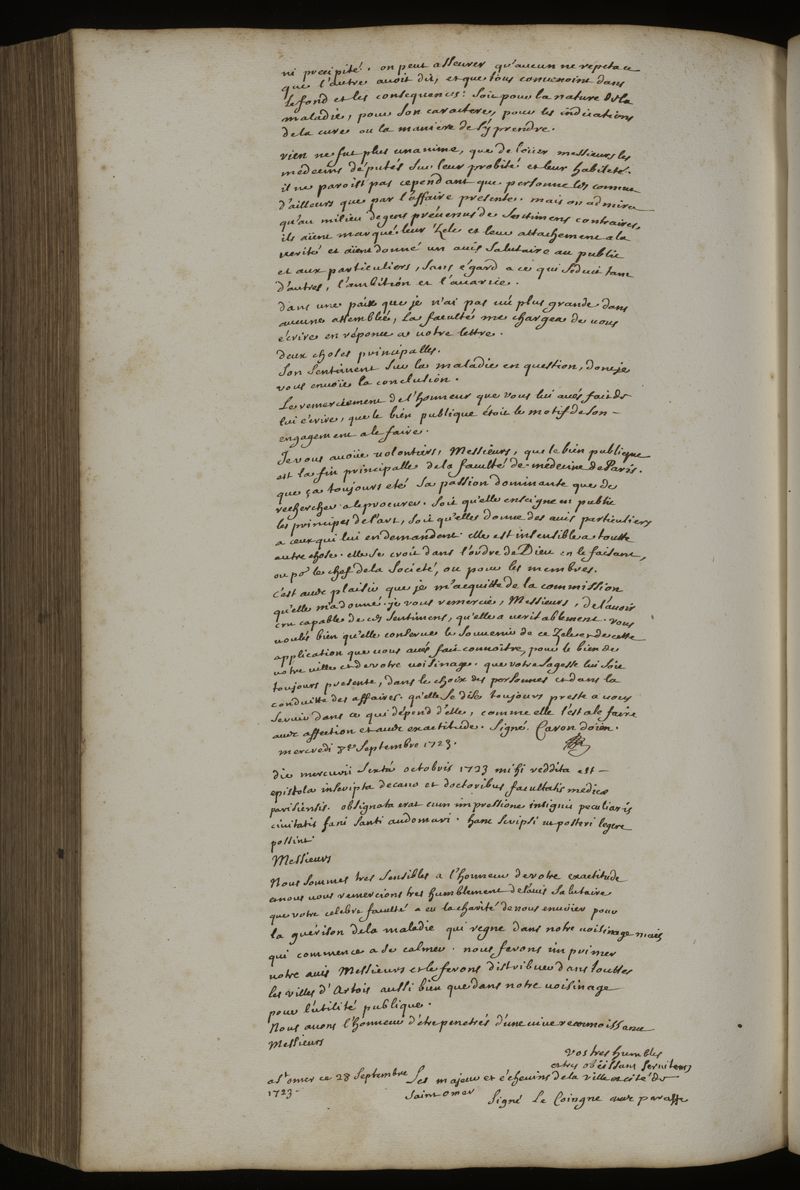 ni precipité. on peut asseurer qu'aucun ne repeta ce
que l'autre avoit dit, et que tous convenoint dans
le fond et les consequences: soit pour la nature de la
maladie, pour son caractere, pour les indications
de la cure ou la maniere de s'y prendre.
rien ne fut plus unanime, que de loüer messieurs les
médecins députés sur leur probité et leur habileté.
il ne paroist pas cependant que personne les connue
d'ailleurs que par l'affaire presente. mais on admira
qu'au milieu de gens prévenus de sentimens contraires,
ils aïent marqué leur zele et leur attachement a la
verité et aïent donné un avis salutaire au public
et aux particuliers, sans égard a ce qui séduit tant
d'autres, l'ambition et l'avarice.
dans une paix que je n'ai pas vû plus grande dans
aucune assemblée, la faculté me chargea de vous
écrire en réponce a votre lettre.
deux choses principalles.
son sentiment sur la maladie en question, dont je
vous envoïe la conclusion.
Le remerciement de l'honneur que vous lui avés fait de
lui écrire, que le bien publique étoit le motif de son
engagement a le faire.
Je vous avoüe volontiers, Messieurs, que le bien publique
est la fin principalle de la faculté de médecine de Paris.
que ç'a toujours eté sa passion dominante que de
rechercher a le procurer. soit qu'elle enseigne en public
les principes de l'art, soit qu'elles donne des avis particuliers
a ceux qui lui en demandent. elle est insensible a toutte
autre chose. elle se croit dans l'ordre de Dieu en le faisant,
ou pr le chef de la Societé, ou pour les membres.
c'est avec plaisir que je m'acquitte de la commission
qu'elle m'a donné. je vous remercie, Messieurs, de l'avoir
cru capable de ces sentimens, qu'elle a veritablement. vous
voulés bien qu'elle conserve le souvenir de ce zele et de cette
application que vous avés fait connoître, pour le bien de
votre ville et de votre voisinage. que votre sagesse lui soit
toujours presente, dans le choix des personnes et dans la
conduitte des affaires. qu'elle se dise toujours preste a vous
servir dans ce qui dépend d'elle, comme elle l'est a le faire
avec affection et avec exactitude. signé. Caron doïen.
mercredi Septembre 1723.
die mercurii sexta octobris 1723 mihi reddita est
epistola inscripta decano et doctoribus facultatis medicæ
parisiensis. obsignata erat cum impressione insignis peculiaris
civitatis fani santi audomari. hanc scripsi ut posteri legere
possint.
Messieurs
Nous sommes tres sensibles a l'honneur de votre exactitude
et nous vous remercions tres humblement de l'avis salutaire
que votre celebre faculté a eu la charité de nous envoïer pour
la guérison de la maladie qui regne dans notre voisinage mais
qui commence a se calmer. nous ferons imprimer
votre avis Messieurs et le ferons distribuer dans touttes
les villes d'Artois aussi bien que dans notre voisinage
pour l'utilité publique.
Nous avons l'honneur d'être penetrés d'une vive reconnoissance
Messieurs
Vos tres humbles
et tres obéissans serviteurs
a St omer ce 28 Septembre Les majeur et échevins de la ville et cité de
1723. Saint omer
signé Le Coingne avec paraffe